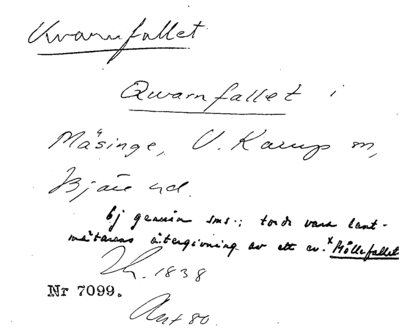 Kvarnfallet
Qwarnfallet i
Mäsinge, V. Karup sn,
Bjäre hd.
Ej genuin sms.; torde vara lant-
mätarens återgivning av ett äv. *Möllefallet
1838
Nr 7099.
Akt 80.